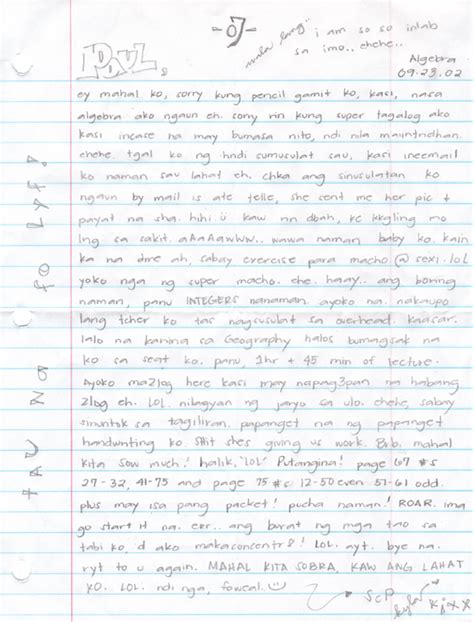 PAUL.
-07-
"wala lang" i am so so inlab
sa imo.. ehehe..
Algebra
09.23.02
ey mahal ko, sorry kung pencil gamit ko, kasi, nasa
algebra ako ngaun eh. sorry rin kung super tagalog ako
kasi incase na may bumasa nito, ndi nila maiintndhan.
ehehe. tgal ko ng hndi sumusulat sau, kasi ineemail
ko naman sau lahat eh. chka ang sinusulatan ko
ngaun by mail is ate telle, she sent me her pic +
payat na sha. hihi. ü kaw nn dbah, kc kkgling mo
lng sa sakit. aAaAaww.. wawa naman baby ko. kain
ka na dme ah, sabay exercise para macho @ sexi. lol
yoko nga ng super macho. ehe. haay.. ang boring
naman, panu INTEGERS nanaman. ayoko na. nakaupo
lang tcher ko tas nagsusulat sa overhead. kaasar.
lalo na kanina sa Geography halos bumagsak na
ko sa seat ko. panu, 1hr + 45 min of lecture.
Ayoko ma2log here kasi may napag3pan na habang
2log eh. LOL. nilagyan ng jaryo sa ulo. ehehe, sabay
sinuntok sa tagiliran. papanget na ng papanget
handwriting ko. Shit shes giving us work. Brb. mahal
kita sow much! halik, 'LOL' Putangina! page 67 #s
27-32, 41-75 and page 75 #s 12-50 even 57-61 odd.
plus may isa pang packet! pucha naman! ROAR. ima
go start it na. err.. ang barat ng mga tao sa
tabi ko, d ako makaconcentr8! LOL. ayt. bye na.
ryt to u again. MAHAL KITA SOBRA, KAW ANG LAHAT
KO. LOL. ndi nga, foweal.
SCP
kyla
Kjxx
TAU NA fo Lyf!